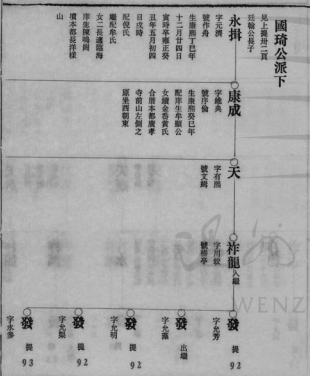 國琦公派下
見上提卅二頁
廷翰公長子
永揖
字元讓
號作舟
生康熙丁巳年
十二月廿四日
寅時卒雍正癸
丑年五月初四
日戌時
配倪氏
繼配牟氏
女二長適臨海
庠生陳鳴岡
墳本都長洋樣
山
康成
字維典
號序倫
生康熙癸巳年
配庠生牟顯公
女續金岙黃氏
合厝本都廣孝
寺前山左側之
原坐西朝東
天
字有
號文
祚龍入繼
號 亭
發 提92
字允芳
發 出繼
發 提92
字允明
發 提92
發 提93
WENZ